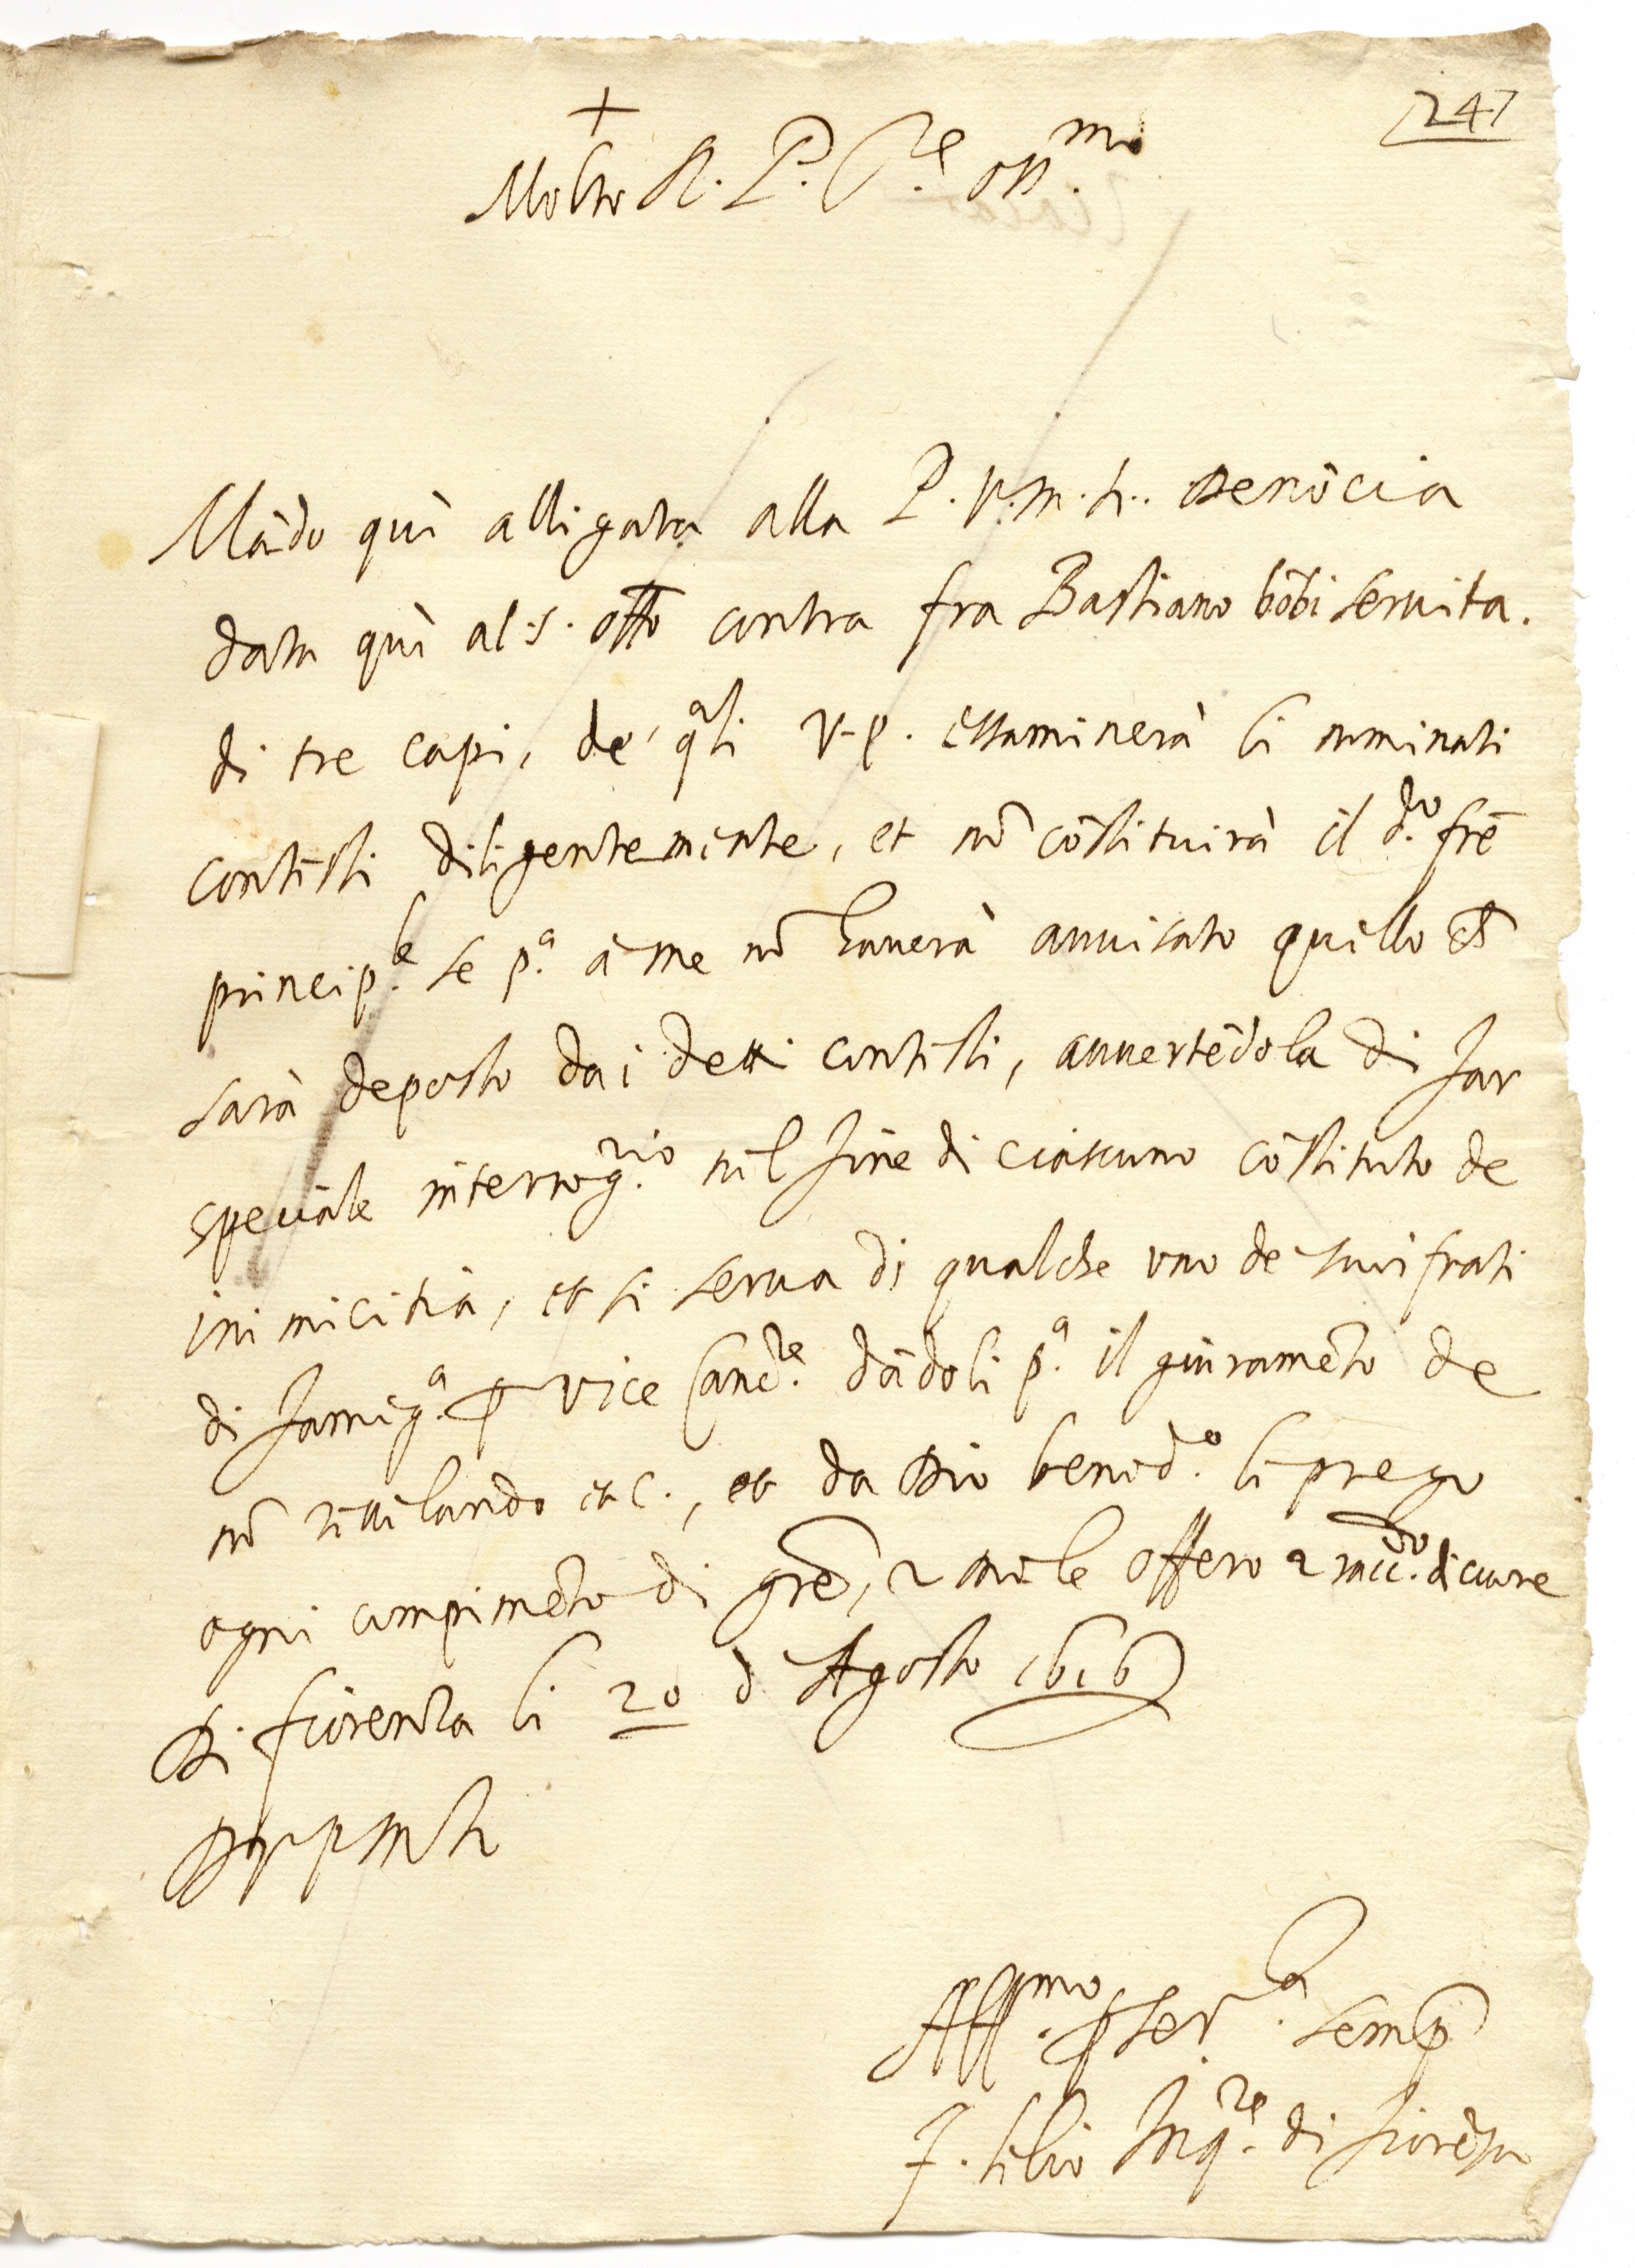 247
+
Molto R. P. Sre oss.mo
Mãdo quì alligata alla P. V. m. R. denõcia
data quì al S. offo contra fra Bastiano bõbi seruita.
di tre capi, de' qali V. P. essaminerà li nominati
contesti diligentemente, et nõ cõstituirà il d.to frẽ
princip.le se p.a à me nõ hauerà auuisato quello ch̃
sarà deposto da i detti contesti, auuertẽdola di far
speciale interrog.rio nel fine di ciascuno cõstituto de
inimicitia, et si serua di qualche uno de suoi frati
di famig.a ꝑ vice Canc.re dãdoli p.a il giuramẽto de
nõ riuelando etc., et da Dio bened.o li prego
ogni compimẽto di grẽ, 2 me le offero 2 racc.do di cuore
Di fiorenza li 20 d Agosto 1616
D V P M R
Aff.mo ꝑ ser.la semp
F. Lelio Inq.re di fiorẽza